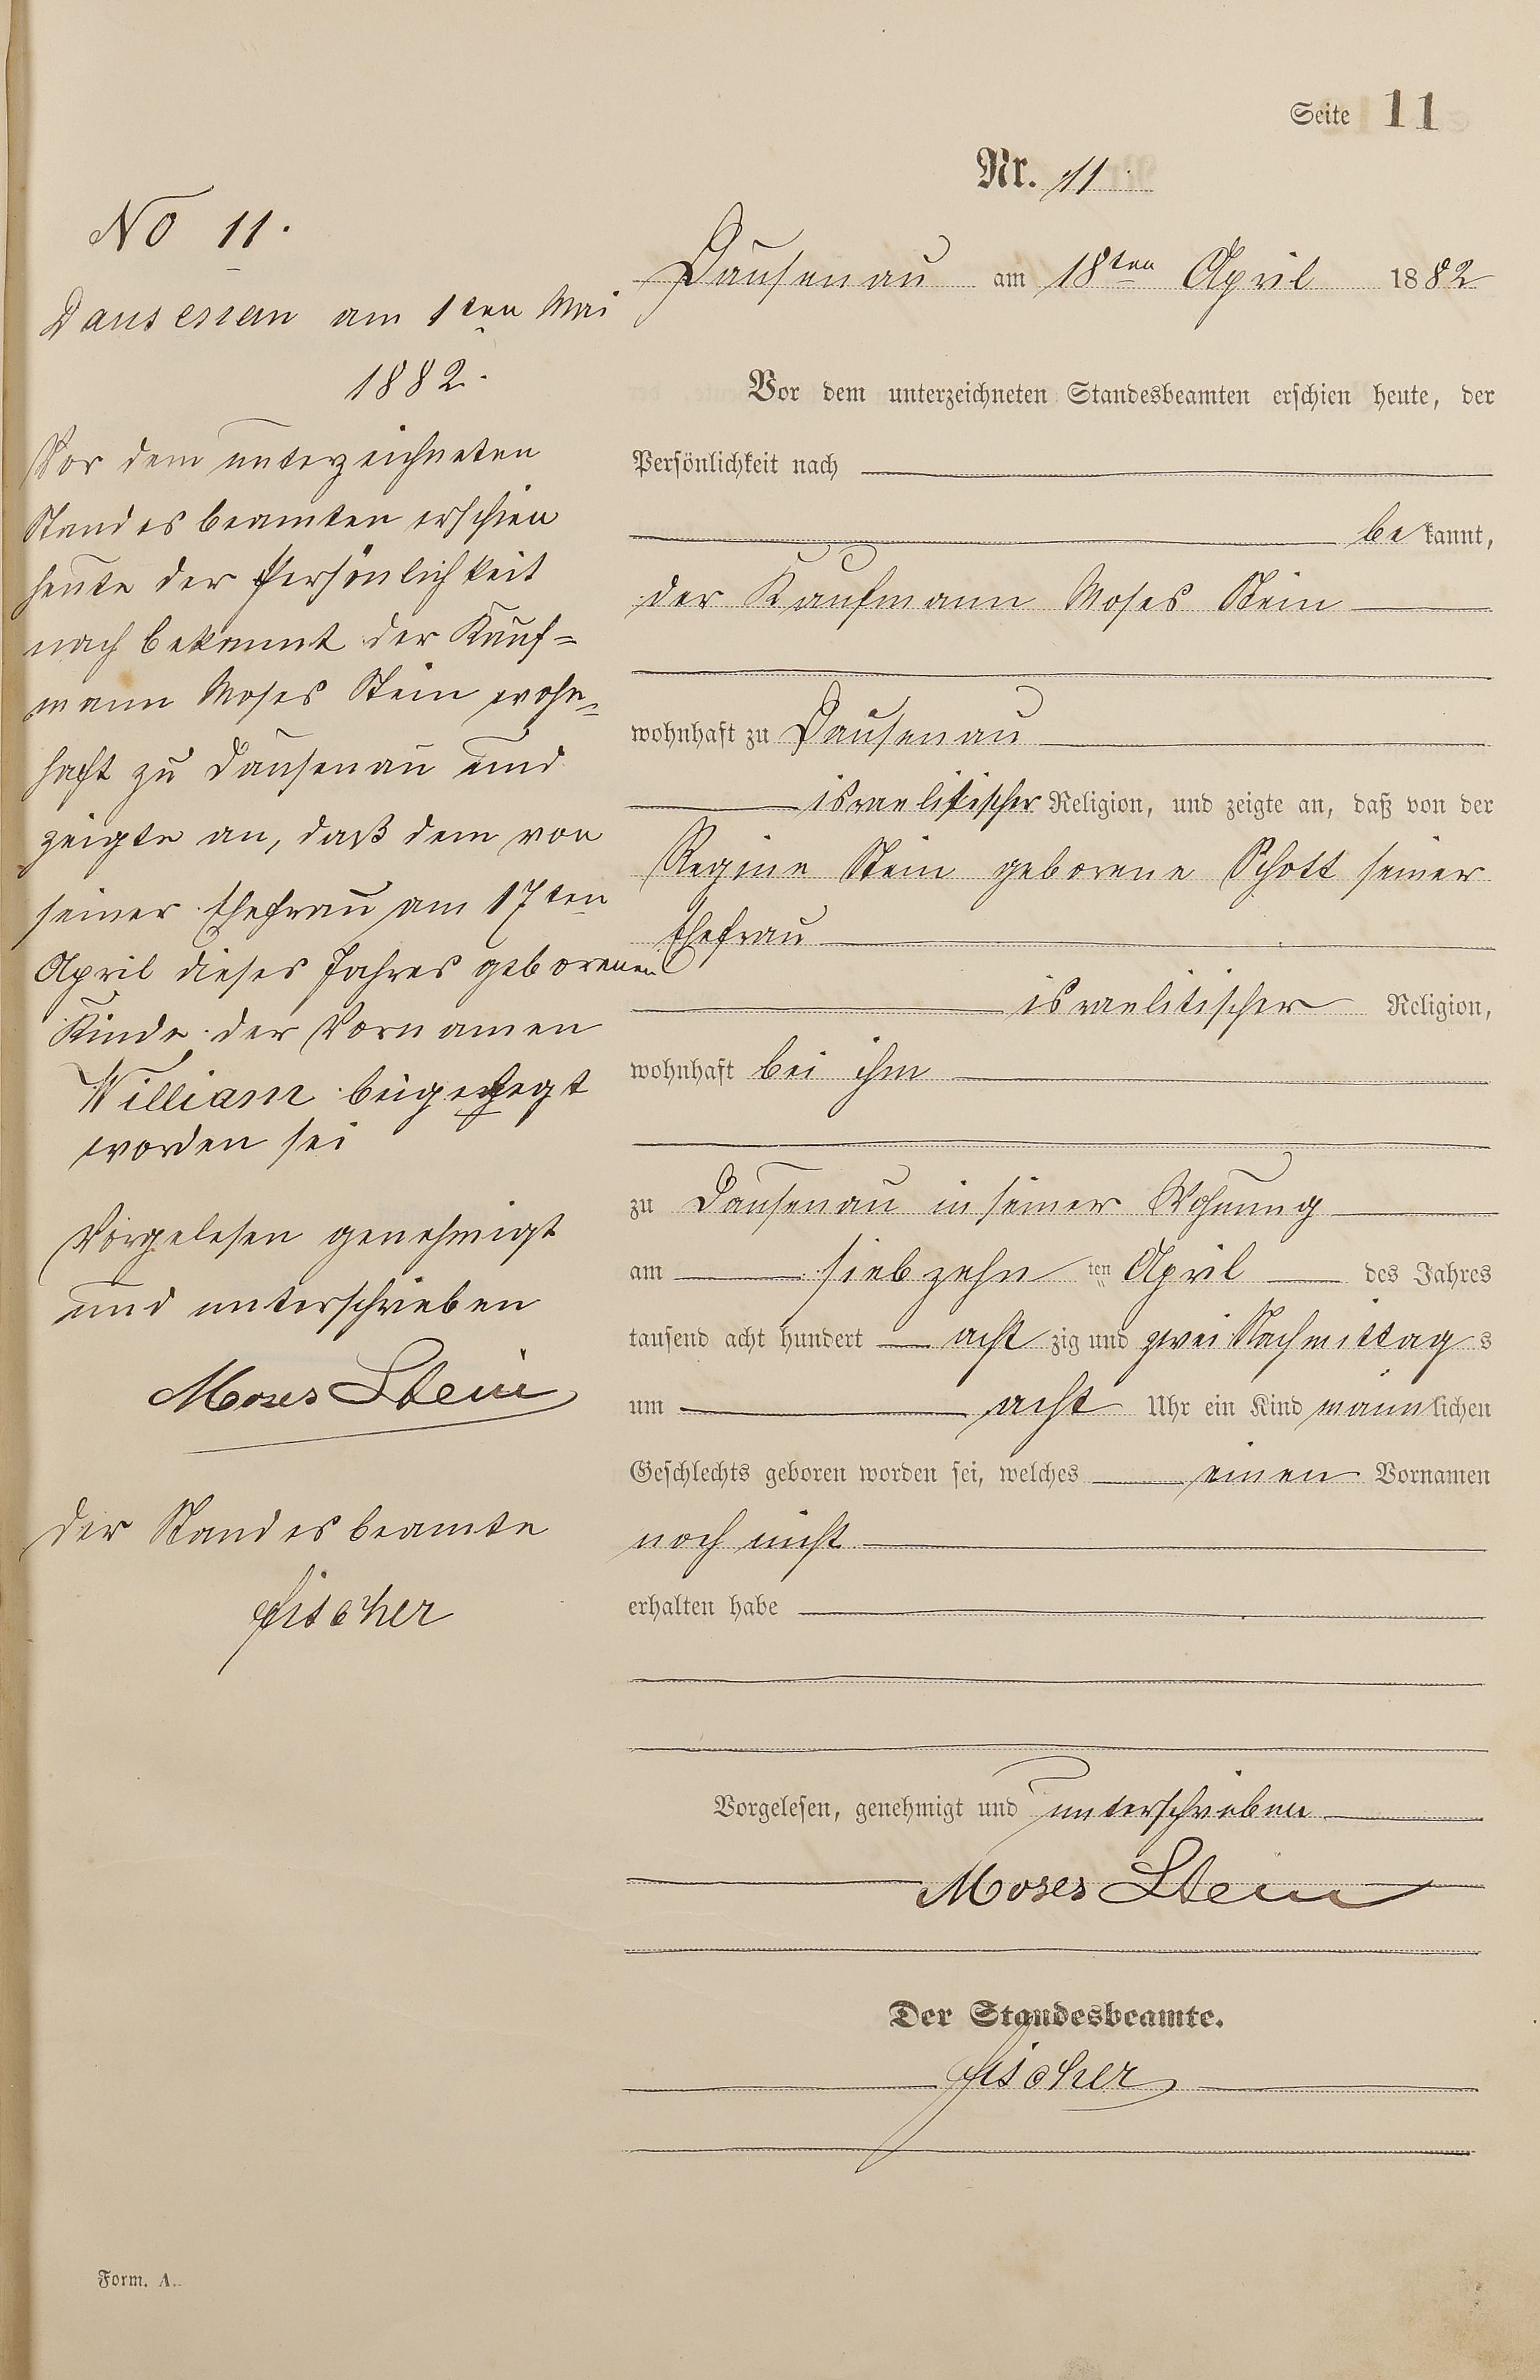 Seite 11
Nr. 11.
Dausenau am 18ten April 1882
Vor dem unterzeichneten Standesbeamten erschien heute, der
Persönlichkeit nach
bekannt,
der Kaufmann Moses Stein
wohnhaft zu Dausenau
israelitischer Religion, und zeigte an, daß von der
Regine Stein geborene Schott seiner
Ehefrau
israelitischer Religion,
wohnhaft bei ihm
zu Dausenau in seiner Wohnung
am siebzehn ten April des Jahres
tausend acht hundert acht zig und zwei Nachmittags
um acht Uhr ein Kind männlichen
Geschlechts geboren worden sei, welches einen Vornamen
noch nicht
erhalten habe
Vorgelesen, genehmigt und unterschrieben
Moses Stein
Der Standesbeamte.
Fischer
No 11.
Dausenau am 1ten Mai
1882.
Vor dem unterzeichneten
Standesbeamten erschien
heute der Persönlichkeit
nach bekannt der Kauf=
mann Moses Stein wohn=
haft zu Dausenau und
zeigte an, daß dem von
seiner Ehefrau am 17ten
April dieses Jahres geborenen
Kinde der Vornamen
William
worden sei
Vorgelesen genehmigt
und unterschrieben
Moses Stein
Der Standesbeamte
Fischer
Form. A.